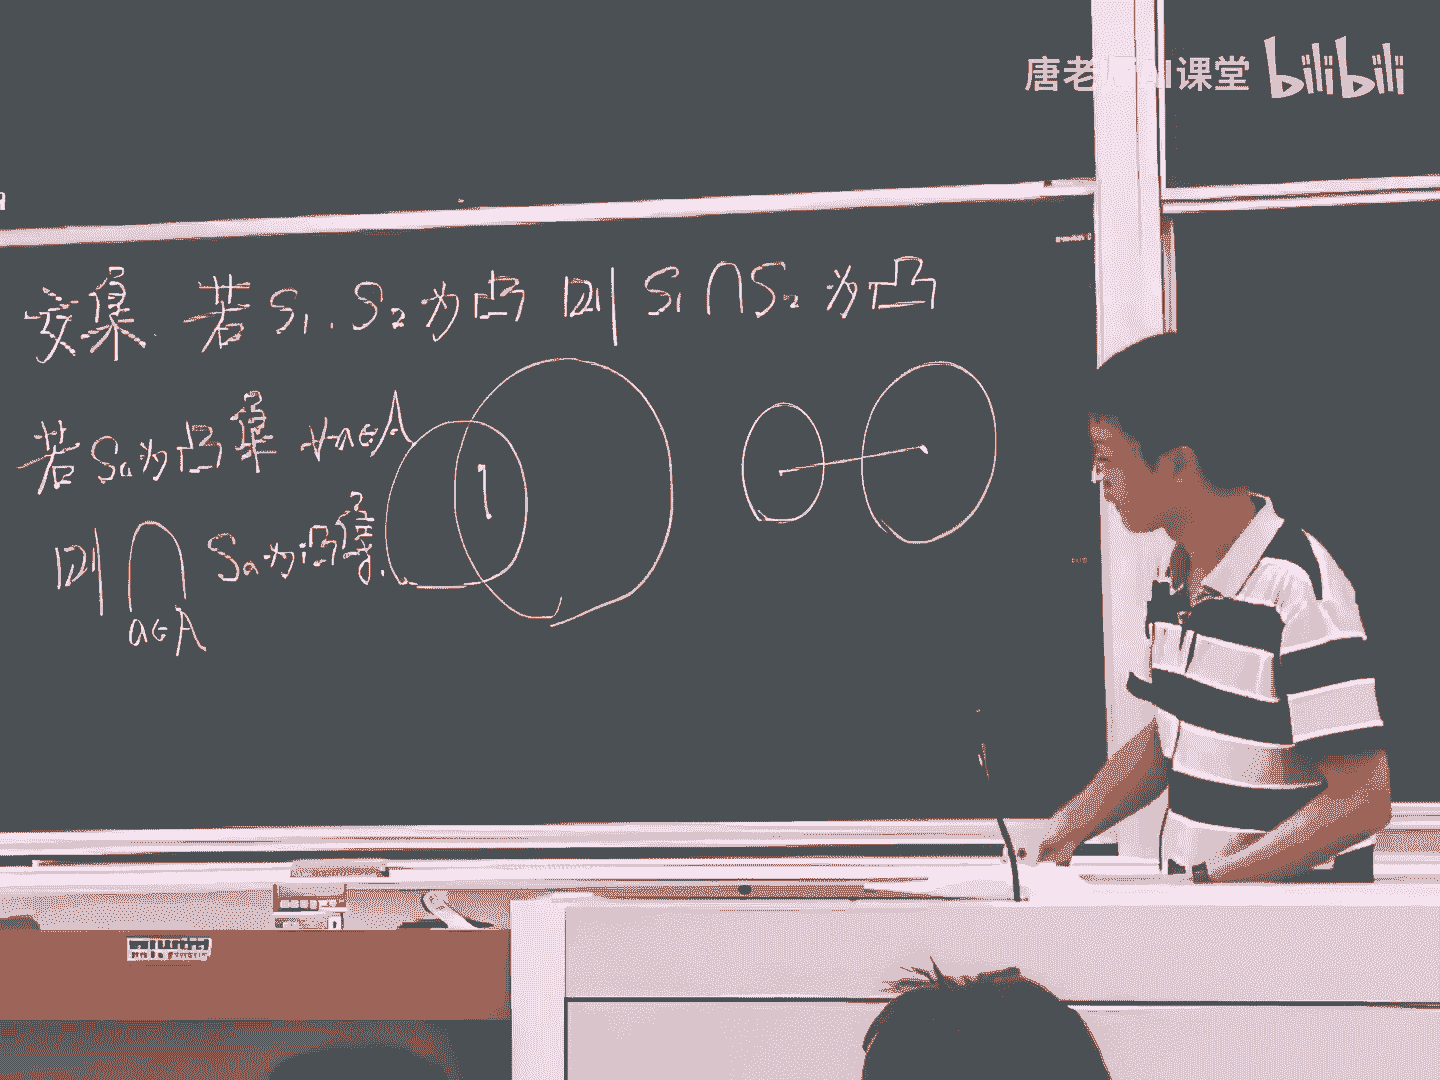 唐老师AI课堂 bilibili
交集. 若 S₁. S₂ 为凸 则 S₁∩S₂ 为凸
若 Sₐ 为凸集 ∀a∈A
则 ∩ Sₐ 为凸集.
a∈A